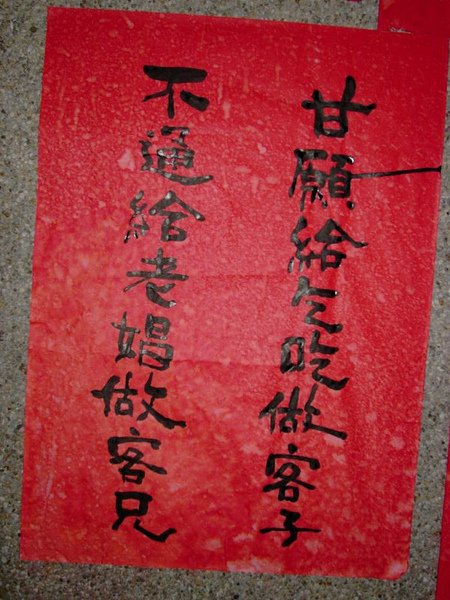 甘願給乞吃做客子
不通給老娼做客兄